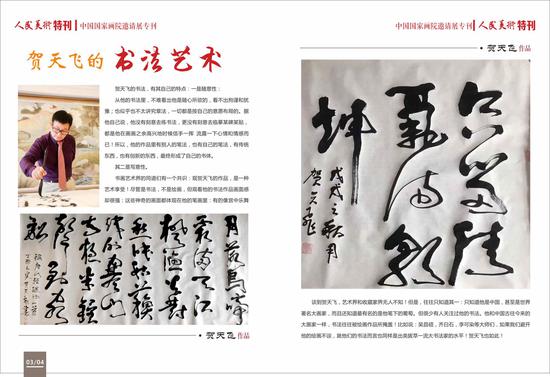 人民美术特刊 中国国家画院邀请展专刊
贺天飞的书法艺术
贺天飞的书法，有其自己的特点：一是随意性：
从他的书法里，不难看出他是随心所欲的，看不出拘谨和犹
豫；也似乎也不太讲究章法，一切都是按自己的意愿布局的。据
他自己说，他没有刻意去练书法，更没有刻意去临摹某碑某贴，
都是他在画画之余高兴地时候信手一挥 流露一下心情和情感而
已！所以，他的作品里有别人的笔法，也有自己的笔法，有传统
东西，也有创新的东西，最终形成了自己的书体。
其二是写意性。
书画艺术界的同道们有一个共识：观贺天飞的作品，是一种
艺术享受！尽管是书法，不是绘画，但观看他的书法作品画面感
却很强；这些神奇的画面都体现在他的笔画里：有的像宫中乐舞
月落乌啼
霜满天江
枫渔火对
愁眠姑苏
城外寒山
寺夜半钟
声到客
船
· 贺天飞 作品
03/04
中国国家画院邀请展专刊 人民美术特刊
· 贺天飞 作品
戊戌之秋月
贺天飞
谈到贺天飞，艺术界和收藏家界无人不知！但是，往往只知道其一：只知道他是中国，甚至是世界
著名大画家，而且还知道最有名的是他笔下的葡萄。但很少有人关注过他的书法。他和中国古往今来的
大画家一样，书法往往被绘画作品所掩盖！比如说：吴昌硕，齐白石，李可染等大师们，如果我们避开
他的绘画不谈，就他们的书法而言也同样是出类拔萃一流大书法家的水平！贺天飞也如此！